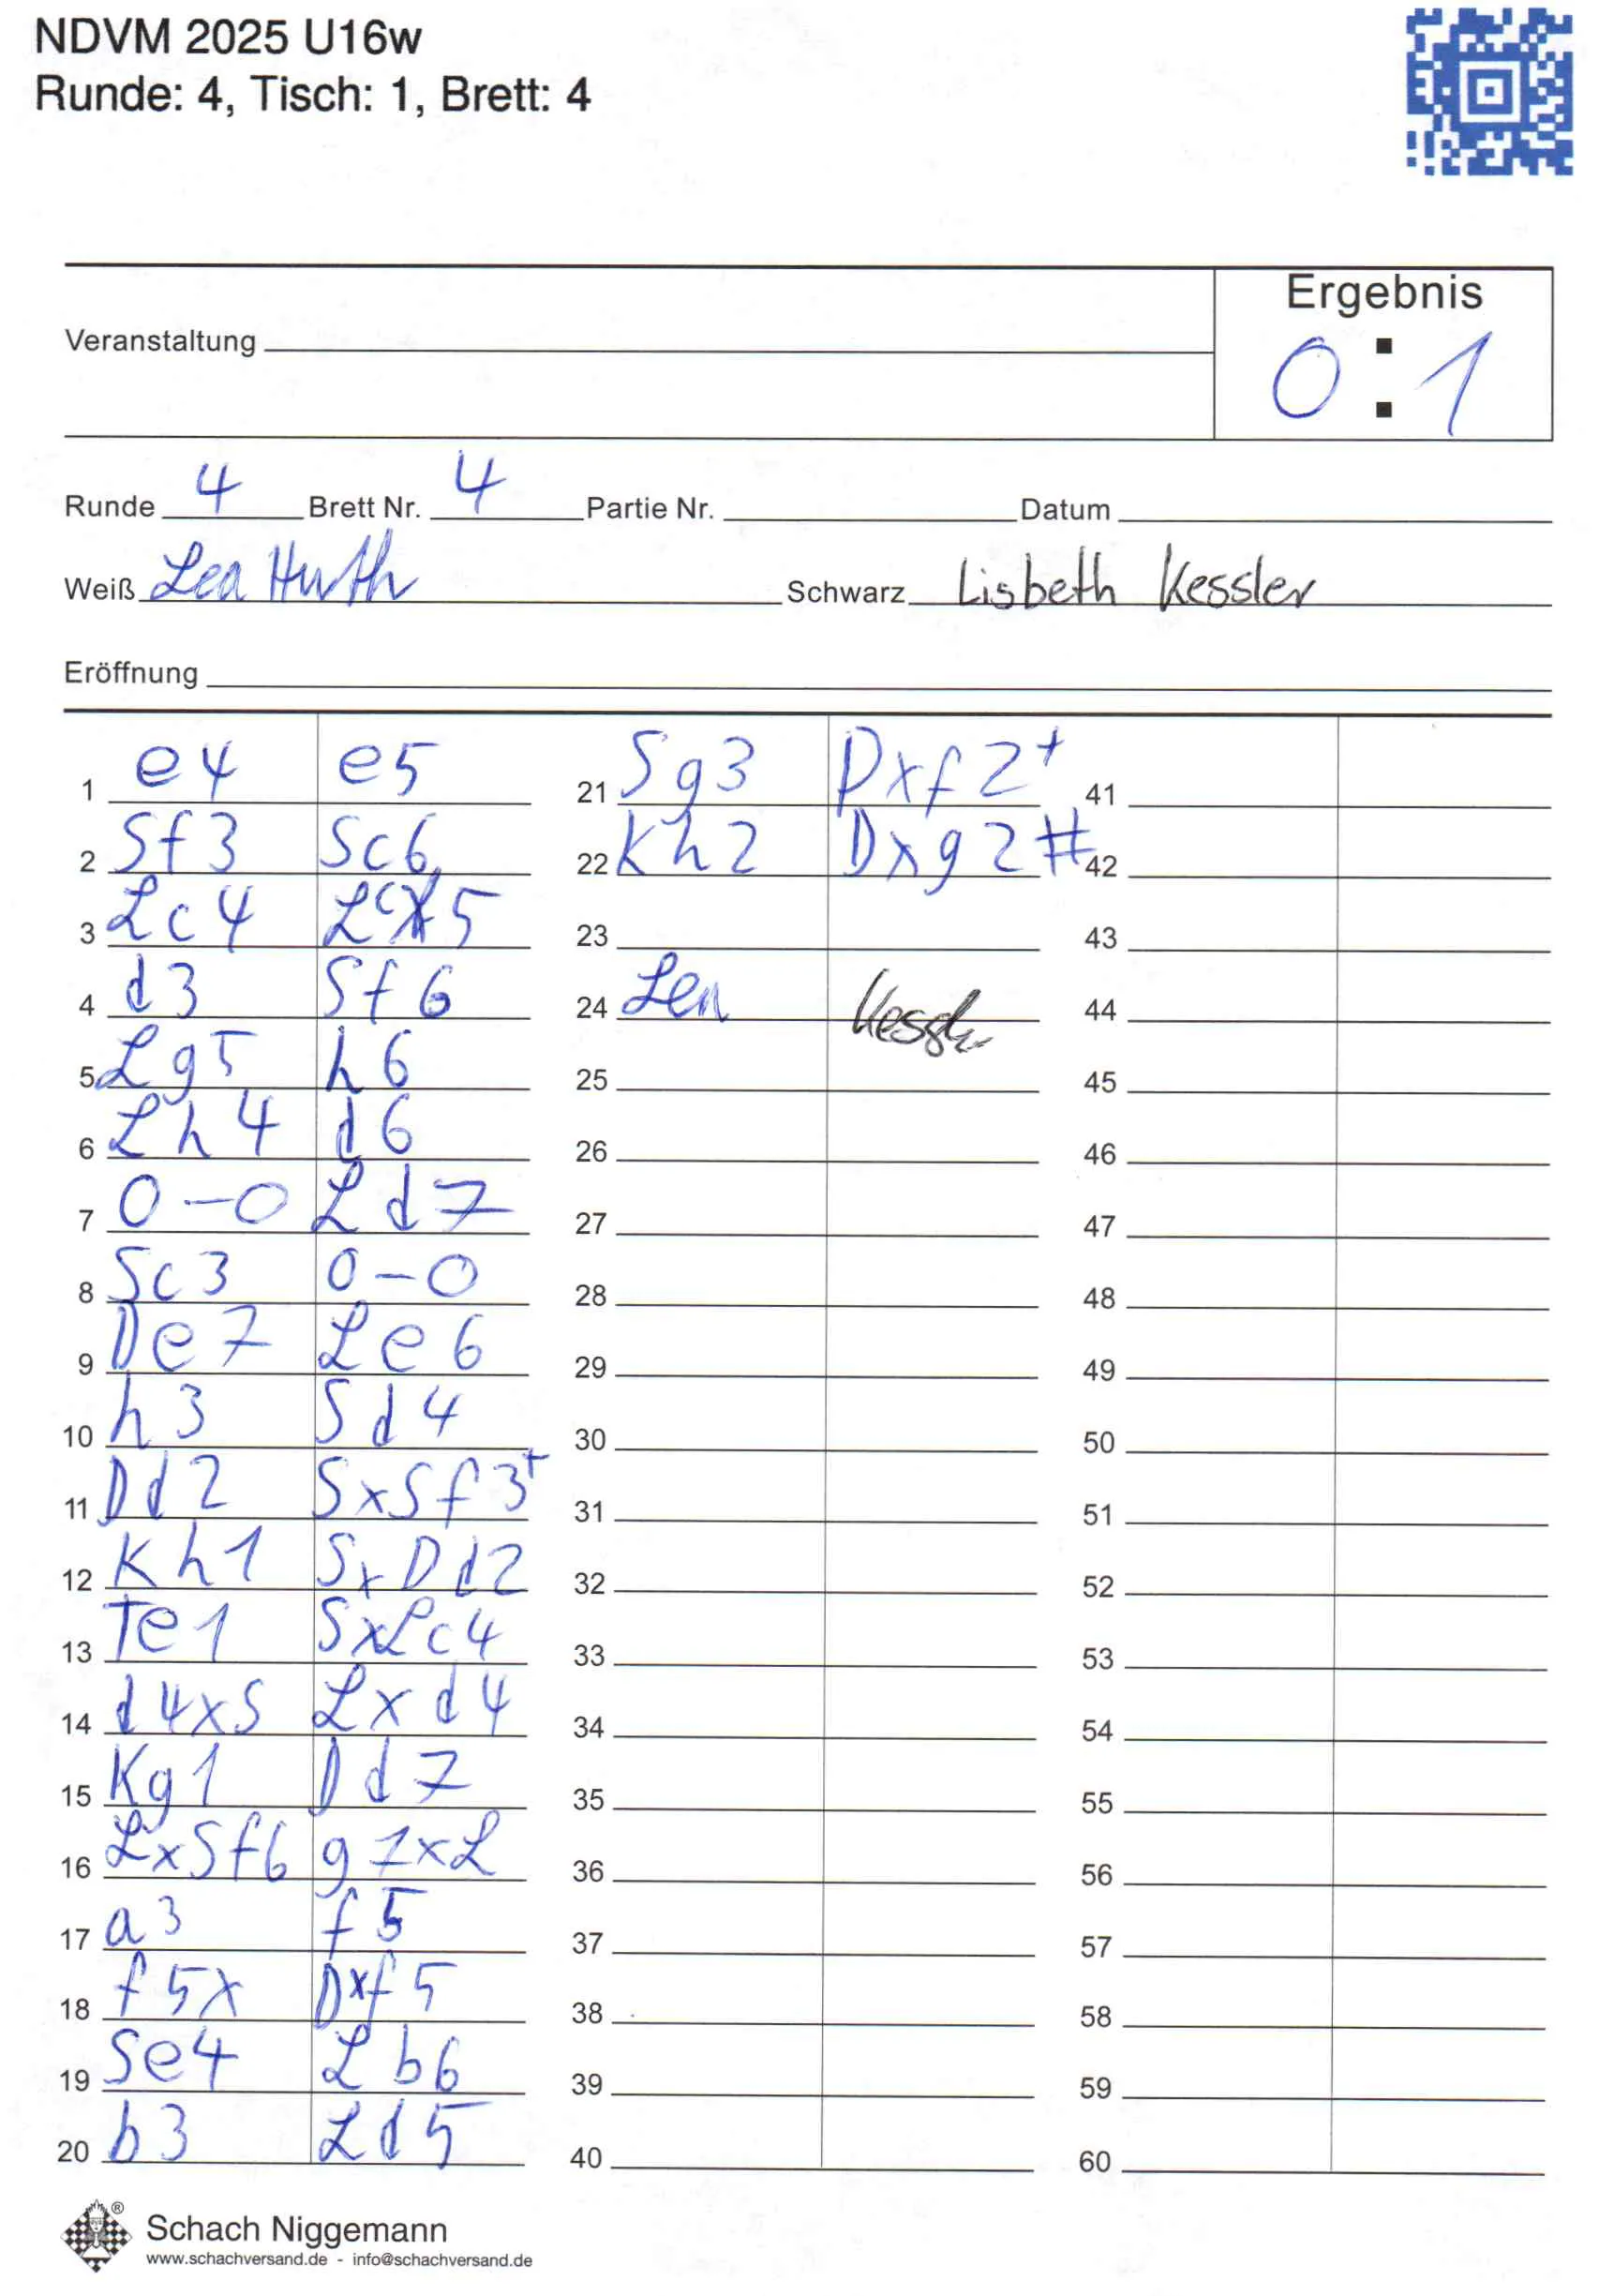 NDVM 2025 U16w
Runde: 4, Tisch: 1, Brett: 4
Ergebnis
Veranstaltung
0 : 1
Runde 4 Brett Nr. 4 Partie Nr. Datum
Weiß Lea Huth Schwarz Lisbeth Kessler
Eröffnung
1 e4 e5 21 Sg3 Dxf2+ 41
2 Sf3 Sc6 22 Kh2 Dxg2# 42
3 Lc4 Lc5 23 43
4 d3 Sf6 24 Lea Kessler 44
5 Lg5 h6 25 45
6 Lh4 d6 26 46
7 0-0 Ld7 27 47
8 Sc3 0-0 28 48
9 De7 Le6 29 49
10 h3 Sd4 30 50
11 Dd2 SxSf3+ 31 51
12 Kh1 SxDd2 32 52
13 Te1 SxLc4 33 53
14 d4xS Lxd4 34 54
15 Kg1 Dd7 35 55
16 LxSf6 g7xL 36 56
17 a3 f5 37 57
18 f5x Dxf5 38 58
19 Se4 Lb6 39 59
20 b3 Ld5 40 60
® Schach Niggemann
www.schachversand.de - info@schachversand.de